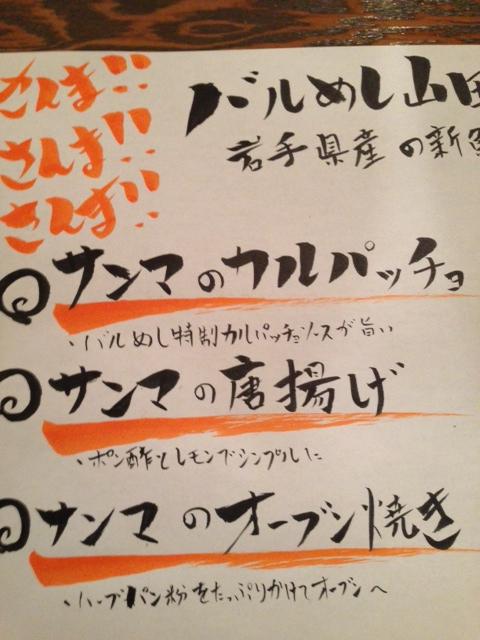 さんま!!
さんま!!
さんま!!
バルめし山田
岩手県産の新
サンマのカルパッチョ
・バルめし特制カルパッチョソースが旨い
サンマの唐揚げ
・ポン酢とレモンでシンプルに
サンマのオーブン焼き
・ハーブパン粉をたっぷりかけてオーブンへ